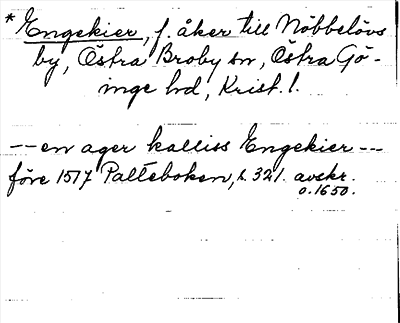 * Engekier, f. åker till Nöbbelövs
by, Östra Broby sn, Östra Gö-
inge hd, Krist. l.
-- en ager kalliss Engekier --
före 1517 Palteboken, s. 321. avskr.
o. 1650.